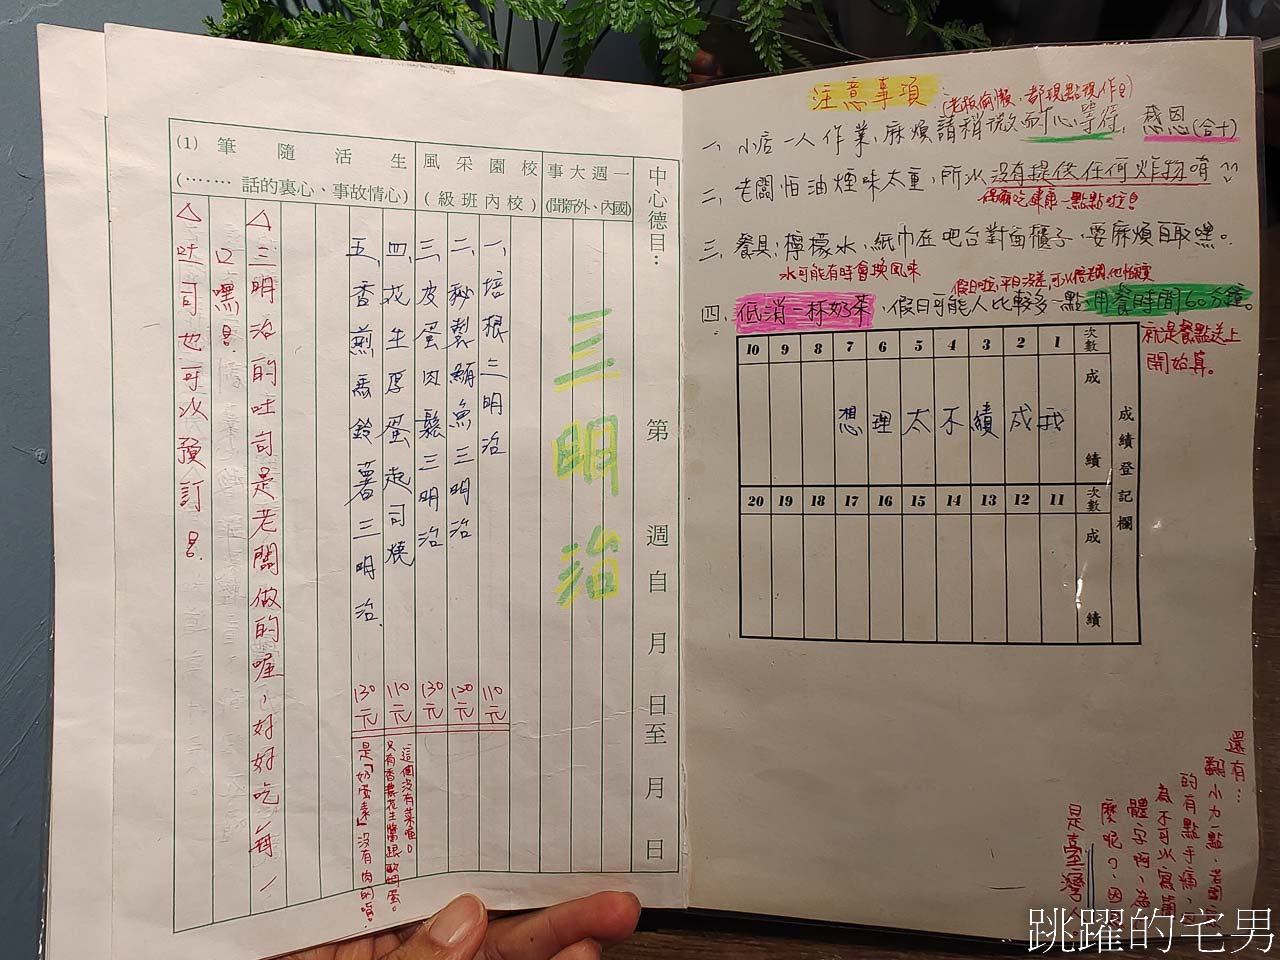 注意事項
(老板偷懶、都現點現作)
一、小店一人作業、麻煩請稍微耐心等待、感恩(合十)
二、老闆怕油煙味太重、所以沒有提供任何炸物唷^^
三、餐具、檸檬水、紙巾在吧台對面櫃子、要麻煩自取嘿。
水可能有時會換風味
四、低消一杯奶茶、假日可能人比較多一點、用餐時間60分鐘。
就是餐點送上
開始算。
成績登記欄
次數 1 2 3 4 5 6 7 8 9 10
成績 我成績不太理想
次數 11 12 13 14 15 16 17 18 19 20
成績
還有…
是臺灣人
中心德目：
第 週 自 月 日至 月 日
一週大事
(國內、外新聞)
三明治
校園采風
(校內班級)
一、培根三明治 110元
二、秘製鮪魚三明治 120元
三、皮蛋肉鬆三明治 130元
四、花生厚蛋起司燒 110元
這個沒有菜喔。
又有香濃花生醬跟歐姆蛋。
五、香煎馬鈴薯三明治. 130元
是「奶蛋素」沒有肉的唷.
生活隨筆
(心情故事、心裏的話……
(1)
△三明治的吐司是老闆做的喔、好好吃每一
口嘿！
△吐司也可以預訂！
跳躍的宅男